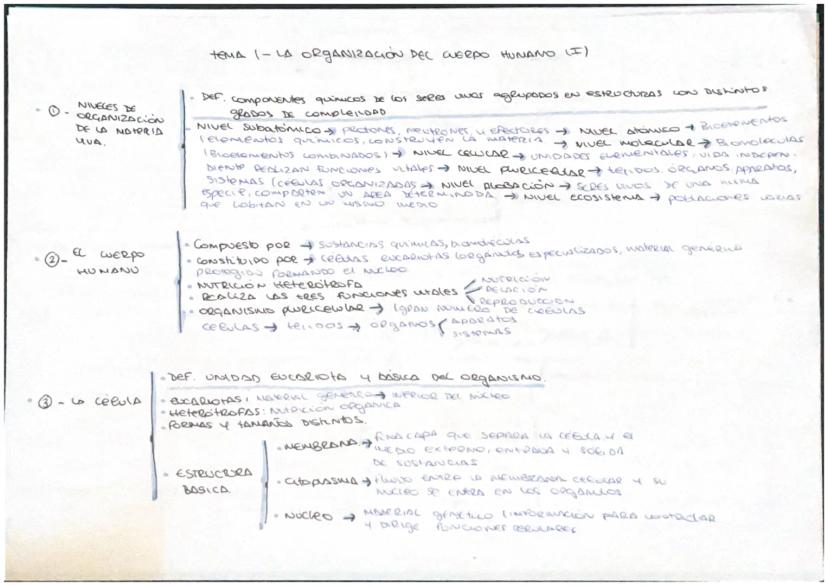 TEMA 1 - LA ORGANIZACIÓN DEL CUERPO HUMANO (I)
① - NIVELES DE ORGANIZACIÓN DE LA MATERIA VIVA.
· DEF. componentes químicos de los seres vivos agrupados en estructuras con distintos grados de complejidad
NIVEL subatómico → protones, neutrones, y → NIVEL atómico → Bioelementos
(elementos químicos, construyen la materia → NIVEL molecular → Biomoléculas
(Bioelementos combinados) → NIVEL celular → unidades elementales, vida indepen-
diente realizan funciones vitales → NIVEL pluricelular → tejidos, órganos aparatos,
sistemas (células organizadas → NIVEL población → seres vivos de una misma
especie, comparten un área determinada → NIVEL ecosistema → poblaciones varias
que habitan en un mismo medio
② - EL CUERPO HUMANO
· Compuesto por → sustancias químicas, biomoléculas
· Constituido por → células eucariotas (orgánulos especializados, material genético
protegido formando el núcleo
· NUTRICIÓN Heterótrofa
· Realiza las tres funciones vitales
NUTRICIÓN
RELACIÓN
REPRODUCCIÓN
· ORGANISMO pluricelular → (gran número de células
células → tejidos → órganos
APARATOS
SISTEMAS
③ - LA CÉLULA
· DEF. UNIDAD EUCARIOTA Y BÁSICA DEL ORGANISMO.
· Eucariotas: material genético → interior del núcleo
· Heterótrofas: nutrición orgánica
· Formas y tamaños distintos.
· ESTRUCTURA BÁSICA.
· MEMBRANA → fina capa que separa la célula y el
medio externo, entrada y salida
de sustancias
· Citoplasma → fluido entre la membrana celular y su
núcleo se en los orgánulos
· Núcleo → material genético (información para controlar
y dirige funciones celulares